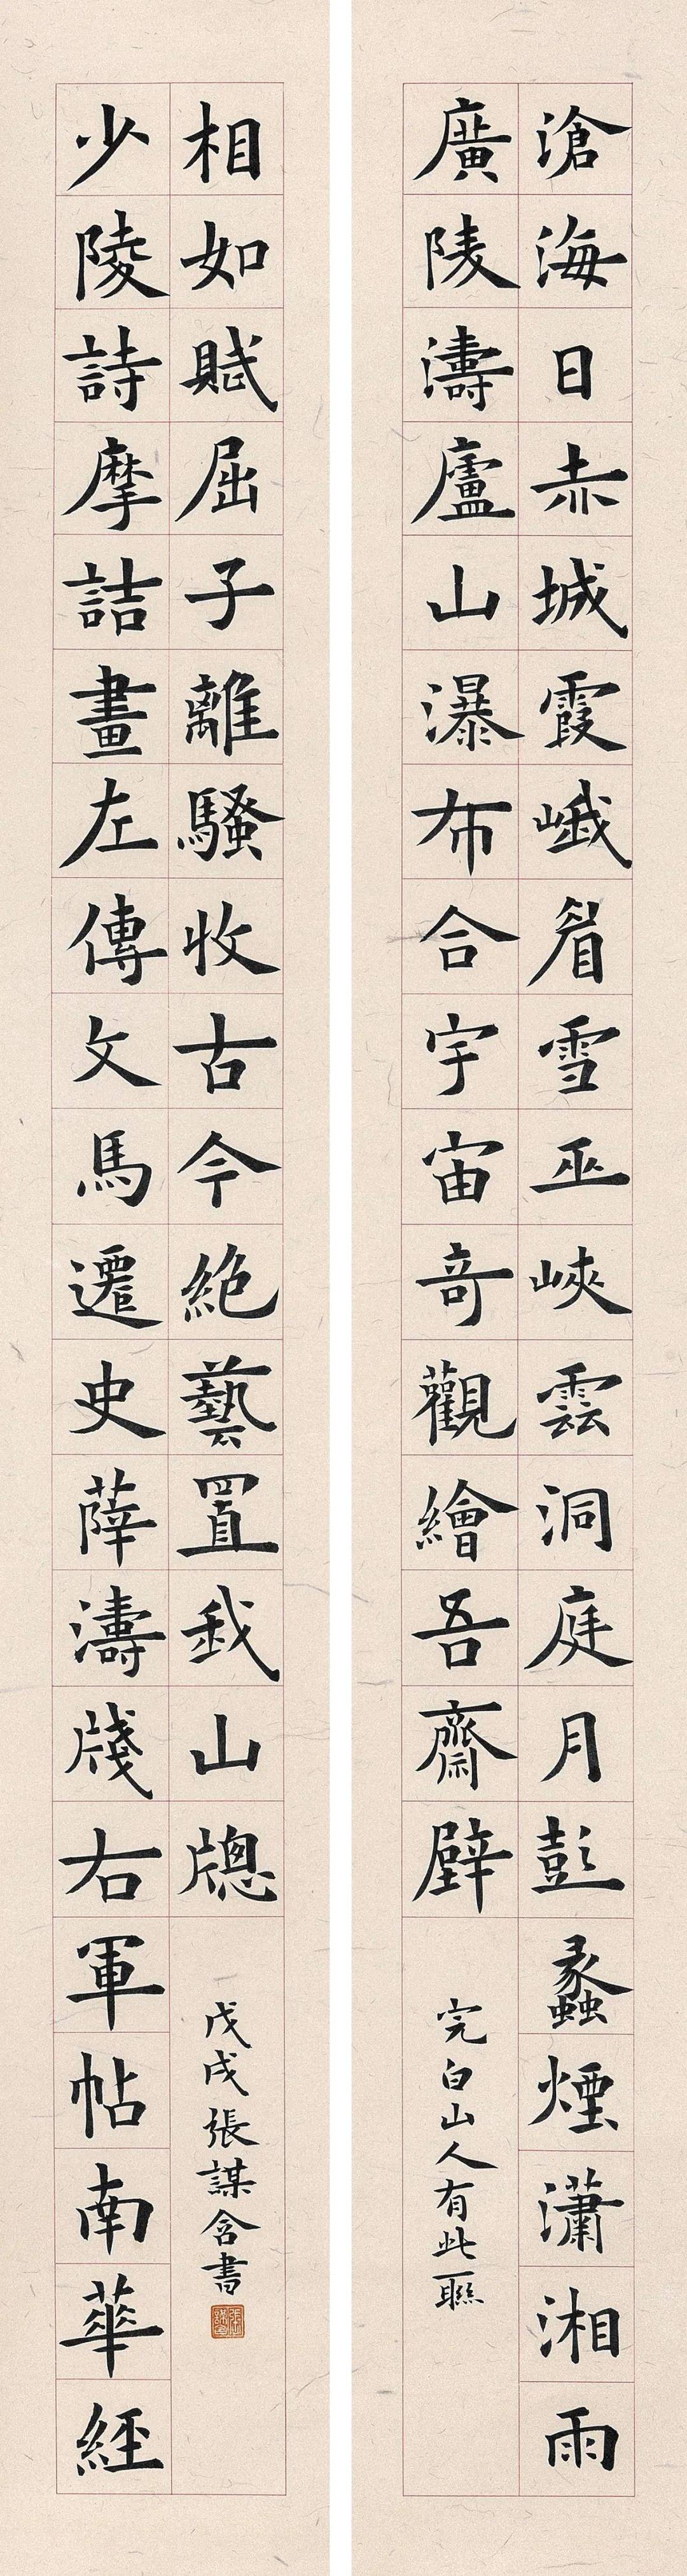 滄海日赤城霞峨眉雪巫峽雲洞庭月彭蠡煙瀟湘雨
廣陵濤廬山瀑布合宇宙奇觀繪吾齋壁
完白山人有此聯
少陵詩摩詰畫左傳文馬遷史薛濤牋右軍帖南華經
相如賦屈子離騷收古今絶藝置我山牕
戊戌張謀含書